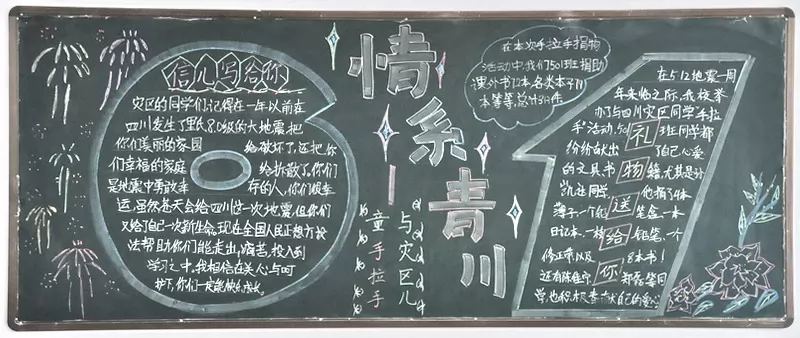 信儿写给你
灾区的同学们,记得在一年以前在
四川发生了里氏8.0级的大地震,把
你们美丽的家园 给破坏了,还把你
们幸福的家庭 给拆散了,你们
是地震中勇敢幸 存的人,你们很幸
运,虽然苍天会给四川这一次地震,但你们
又给了自己一次新生命。现在全国人民正想方设
法帮助你们能走出痛苦,投入到
学习之中,我相信在关心与呵
护下,你们一定能快乐成长。
情系青川
与灾区儿
童手拉手
在本次手拉手捐物
活动中,我们501班捐助
课外书12本,各类本子
本等等,总计 件
在5.12地震一周
年来临之际,我校举
办了与四川灾区同学手拉
手活动,501 班同学都
纷纷献出 了自己心爱
的文具、书 籍,尤其是
同学 他捐了4本
薄子、一个 笔盒、一本
日记本、一 铅笔、一个
修正带以及 8本书!
还有陈 等同
学,也积极 自己的爱心
礼物送给你